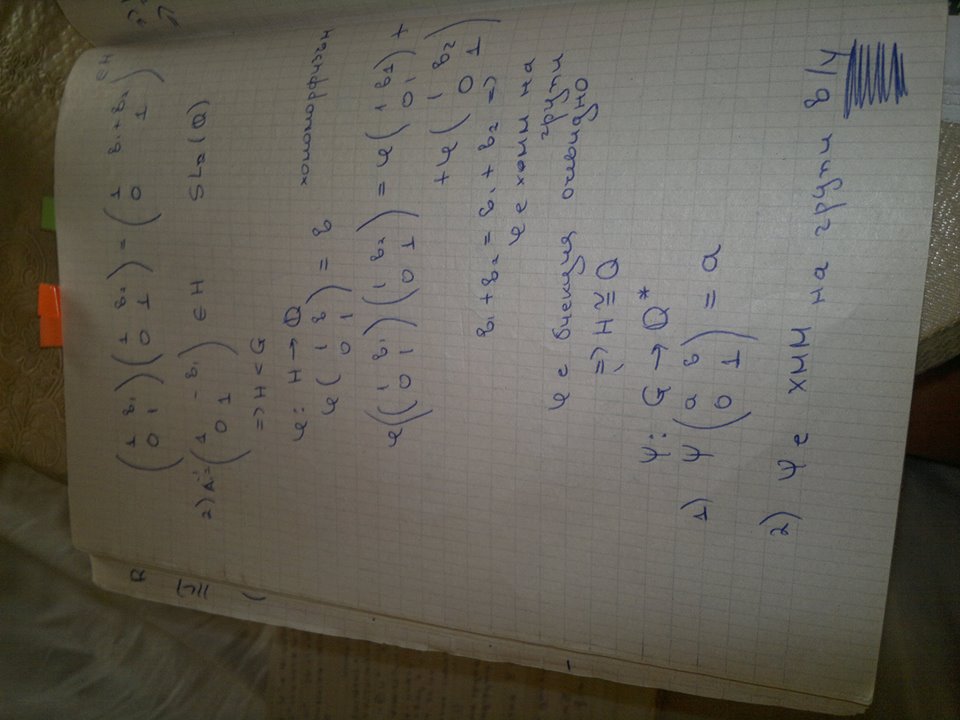 ( 1 b₁ / 0 1 ) ( 1 b₂ / 0 1 ) = ( 1 b₁+b₂ / 0 1 ) ∈ H
2) A⁻¹ = ( 1 -b₁ / 0 1 ) ∈ H SL₂(Q)
=> H < G
φ: H → Q хомоморфизъм
φ ( 1 b / 0 1 ) = b
φ(( 1 b₁ / 0 1 ) ( 1 b₂ / 0 1 )) = φ ( 1 b1 / 0 1 ) +
+ φ ( 1 b₂ / 0 1 )
b₁+b₂ = b₁ + b₂ =>
φ е хомм на
групи
φ е биекция очевидно
=> H ≅ Q
ψ: G → Q*
1) ψ ( a b / 0 1 ) = a
2) ψ е хмм на групи в/у